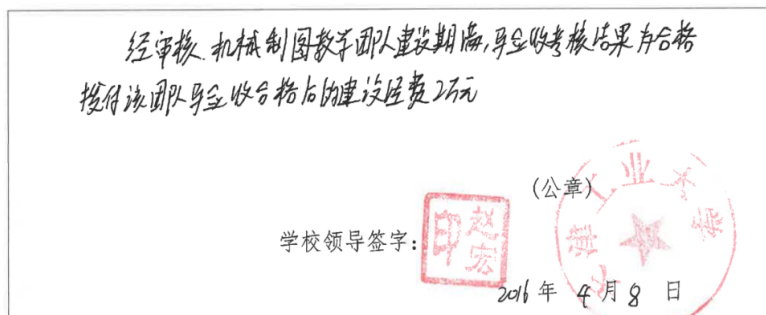 经审核，机械制图教学团队建设期满，验收考核结果为合格
拨付该团队验收合格后的建设经费2万元
(公章)
学校领导签字：
赵宏
印
工业大
2016年4月8日